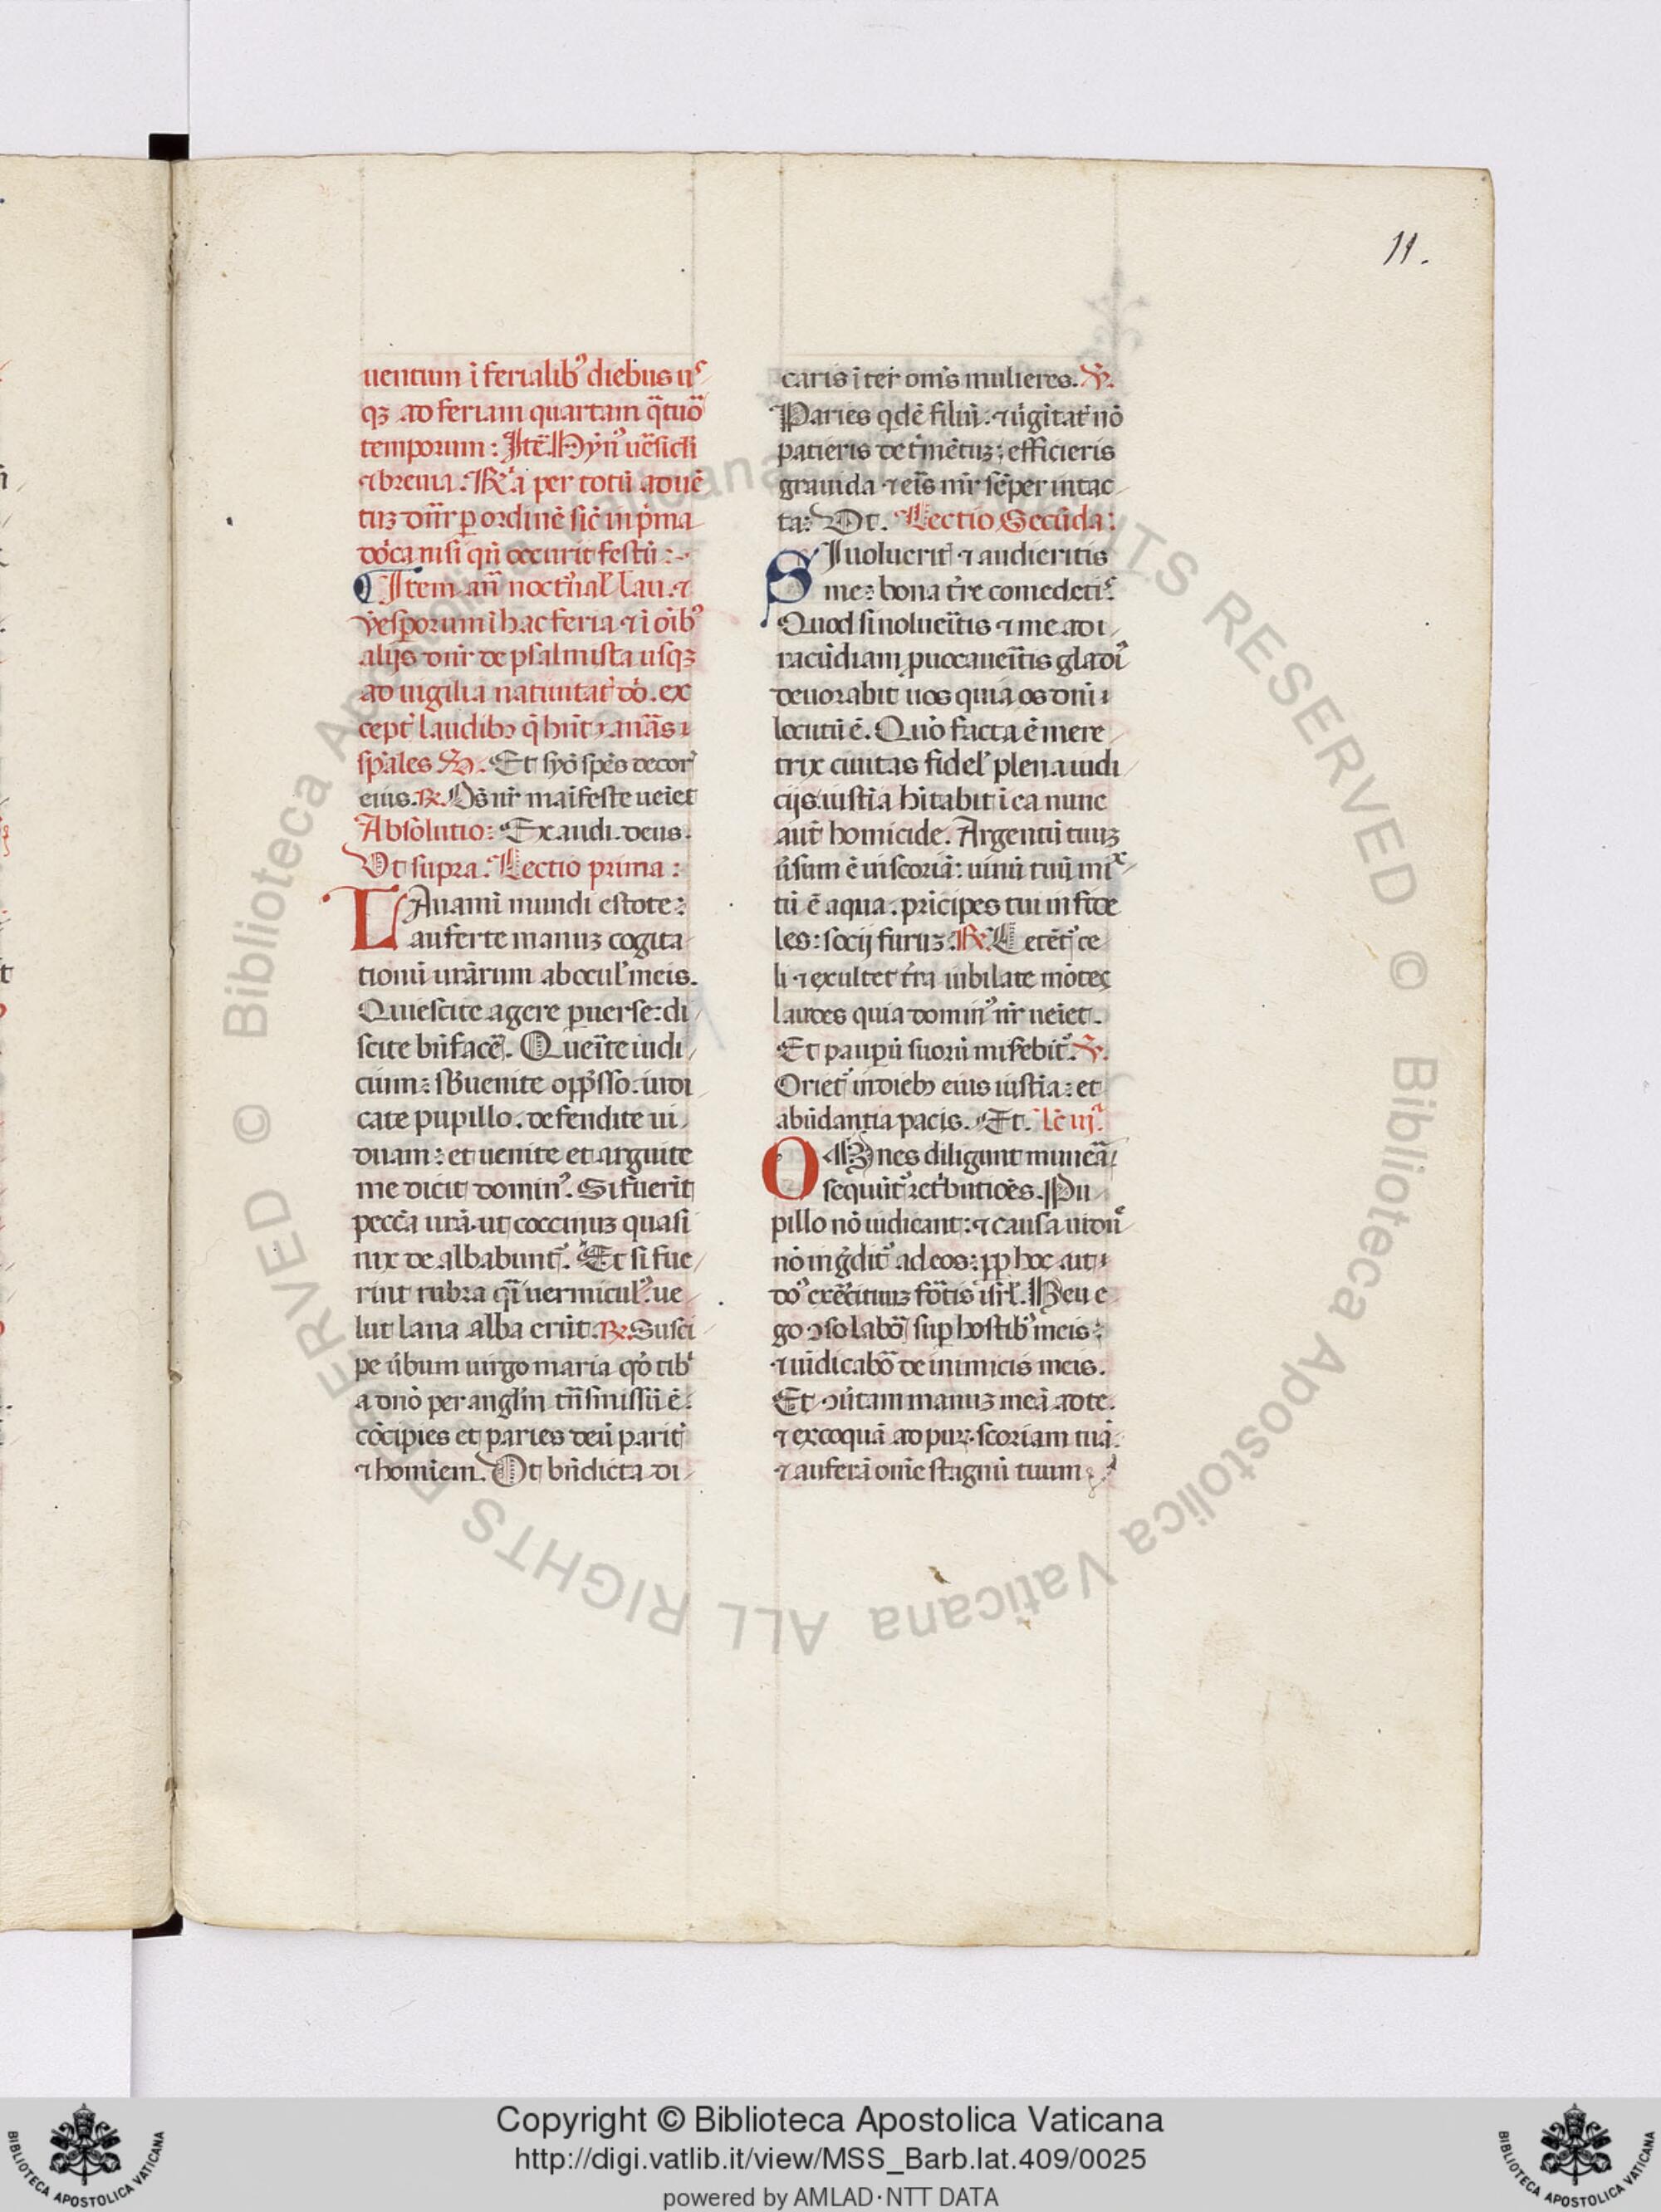 11.
uentum ī ferialibꝰ diebus uſ
qꝫ ad feriam quartam q̄tuō
temporum: Itē Hȳnꝰ ūſicli
⁊ breuia. ℟a per totū aduē
tuꝫ dn̄r ꝑ ordinē ſic̄ in p̄ma
do̅ca niſi qn̄ occurit feſtū:
Item an̄ noct̄nal̄ lau. ⁊
veſporum ī hac feria ⁊ ī oībꝰ
alijs dn̄r de pſalmiſta uſqꝫ
ad uigilia natiuitat̄ do̅. ex
cept̄ laudibꝫ q̄ hn̄t anās
ſpāles ℣. Et ſyō ſpēs decor̄
eius. ℟. Ds̄ nr̄ maīfeſte ueīet
Abſōlutio: Exaudi deus.
Vt supra. Lectio prima:
LAuamī mundi eſtote:
auferte manuꝫ cogita
tionū ur̄arum ab oculꝰ meis.
Quieſcite agere ꝑuerſe: di
ſcite bn̄facē. Queīte iudi
cium: ſb̄uenite opp̄ſſo. iudi
cate pupillo. defendite ui
duam: et uenite et arguite
me dicit dominꝰ. Si fuerīt
peccā ur̄a ut coccinuꝫ quaſi
nix dealbabunt̄. Et ſi fue
rint rubra qͣi uermiculꝰ ue
lut lana alba erūt. ℟. Suſci
pe ūbum uirgo maria qō tibi
a dn̄o per angl̄m tn̄ſmiſſū ē.
cōcipies et paries deū parit̄
⁊ homīem. Vt bn̄dicta di
caris īter om̄s mulieres. ℣.
Paries qdē filiū. ⁊ ūgītat̄ nō
patieris det̄mētuꝫ: efficieris
grauida ⁊ eīs mr̄ ſēper intac
ta: Vt. Lectio Secūda:
SI uoluerit̄ ⁊ audieritis
me: bona t̄re comedetiſ
Quod ſi nolueītis ⁊ me ad i
racūdiam ꝓuocaueītis gladiꝰ
deuorabit uos quia os dn̄i
locutū ē. Quō facta ē mere
trix ciuitas fidelꝰ plena iudi
cijs. iuſtīa hītabit ī ea nunc
aut̄ homicide. Argentū tuuꝫ
ūſum ē in ſcoriā: uinū tuū mix
tū ē aqua. pricipes tui infide
les: ſocij furuꝫ. ℟. Letētꝰ ce
li ⁊ exultet t̄ra iubilate mōtes
laudes quia dominꝰ nr̄ ueīet.
Et pauꝑū ſuorū miſebit̄. ℣.
Oriet̄ in diebꝫ eius iuſtīa: et
abūdantia pacis. Et. Lc̄ iij
OMnes diligunt muneā
ſequūt̄ ret̄butiōes. Pu
pillo nō iudicant: ⁊ cauſa uidue
nō inḡdit̄ ad eos: ꝓp hoc ait
dō exērcituuꝫ fōtis iſrl̄. Heu e
go ↄſolabōꝛ ſuꝑ hoſtibꝰ meis:
⁊ uīdicabōꝛ de inimicis meis.
Et ↄūtam manuꝫ meā ad te.
⁊ excoquā ad puꝝ ſcoriam tuā:
⁊ auferā om̄e ſtagnū tuum
© Biblioteca Apostolica Vaticana ALL RIGHTS RESERVED © Biblioteca Apostolica Vaticana ALL RIGHTS RESERVED
Copyright © Biblioteca Apostolica Vaticana
http://digi.vatlib.it/view/MSS_Barb.lat.409/0025
powered by AMLAD·NTT DATA
BIBLIOTECA APOSTOLICA VATICANA
BIBLIOTECA APOSTOLICA VATICANA